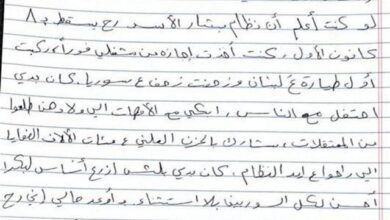 لو كنت أعلم أن نظام بشار الأسد رح يسقط بـ ٨
كانون الأول، كنت أخذت إجازة من شغلي فوراً، ركبت
أول طيارة ع لبنان وزحفت زحف ع سوريا. كان بدي
احتفل مع الناس، ابكي مع الأمهات الي ولادهن طلعوا
من المعتقلات، شارك بالحزن العلني ع مئات الآلاف الضحايا
الي راحوا ع ايد النظام. كان بدي بلش ازرع أساس لبكرا
أحسن لكل السوريين بلا استثناء. وأوعد حالي إني رح